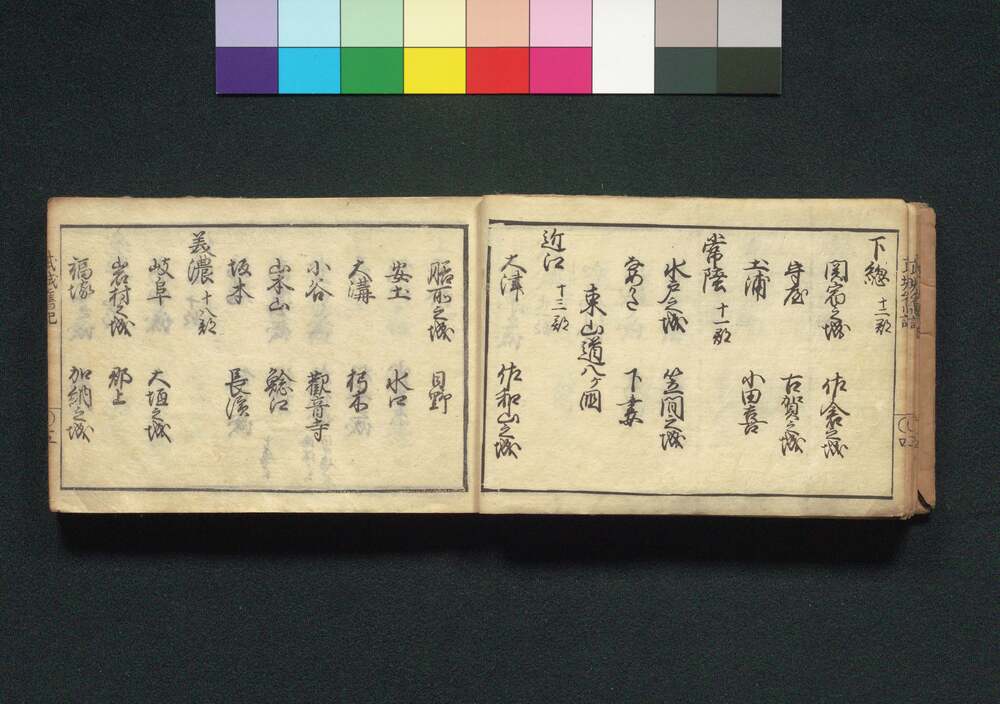 下總 十二郡
関宿之城 佐倉之城
守屋 古賀之城
土浦 小田喜
常陸 十一郡
水戸之城 笠間之城
下妻
東山道八ケ国
近江 十三郡
大津 佐和山之城
膳所之城 日野
安土 水口
大溝 朽木
小谷 觀音寺
山本山 鯰江
坂本 長濱
美濃 十八郡
岐阜 大垣之城
岩村之城 郡上
福塚 加納之城